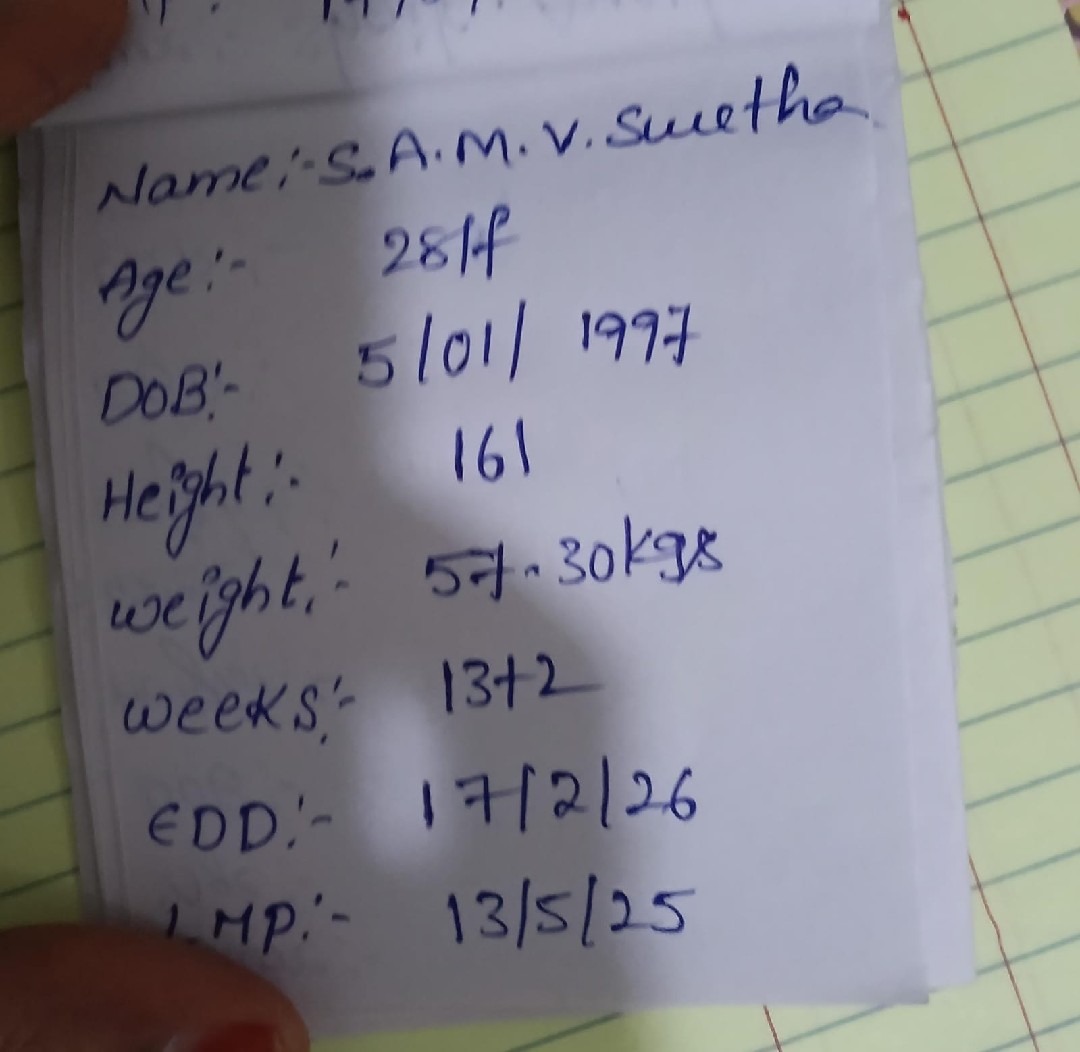 Name:- S.A.M.V. Swetha
Age:- 28/f
DOB:- 5/01/ 1997
Height:- 161
weight:- 57.30kgs
weeks:- 13+2
EDD:- 17/2/26
LMP:- 13/5/25